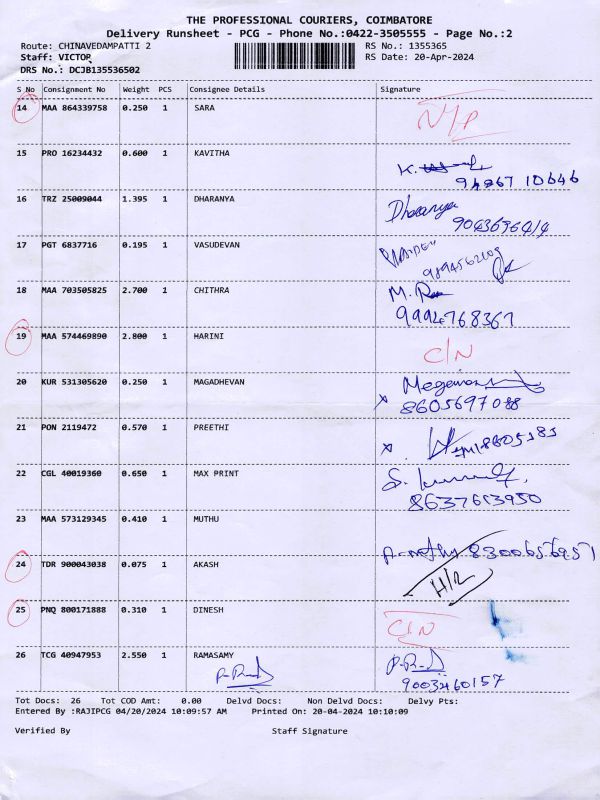 THE PROFESSIONAL COURIERS, COIMBATORE
Delivery Runsheet - PCG - Phone No.:0422-3505555 - Page No.:2
Route: CHINAVEDAMPATTI 2 RS No.: 1355365
Staff: VICTOR RS Date: 20-Apr-2024
DRS No.: DCJB135536502
S No Consignment No Weight PCS Consignee Details Signature
14 MAA 864339758 0.250 1 SARA
15 PRO 16234432 0.600 1 KAVITHA
16 TRZ 25009044 1.395 1 DHARANYA Dharanya
17 PGT 6837716 0.195 1 VASUDEVAN
18 MAA 703505825 2.700 1 CHITHRA M.
9994768367
19 MAA 574469890 2.800 1 HARINI C/N
20 KUR 531305620 0.250 1 MAGADHEVAN
8605697088
21 PON 2119472 0.570 1 PREETHI
22 CGL 40019360 0.650 1 MAX PRINT
8637613950
23 MAA 573129345 0.410 1 MUTHU
8300656957
24 TDR 900043038 0.075 1 AKASH
25 PNQ 800171888 0.310 1 DINESH C/N
26 TCG 40947953 2.550 1 RAMASAMY
9003460157
Tot Docs: 26 Tot COD Amt: 0.00 Delvd Docs: Non Delvd Docs: Delvy Pts:
Entered By :RAJIPCG 04/20/2024 10:09:57 AM Printed On: 20-04-2024 10:10:09
Verified By Staff Signature